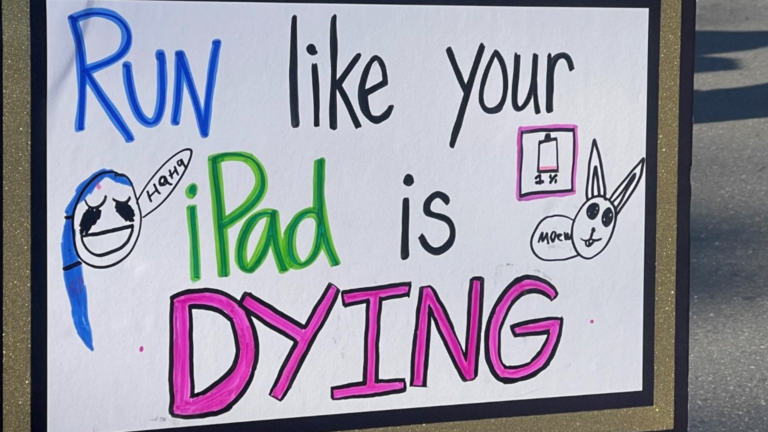 RUN like your
HAHA
iPad is
1%
MOEW
DYING